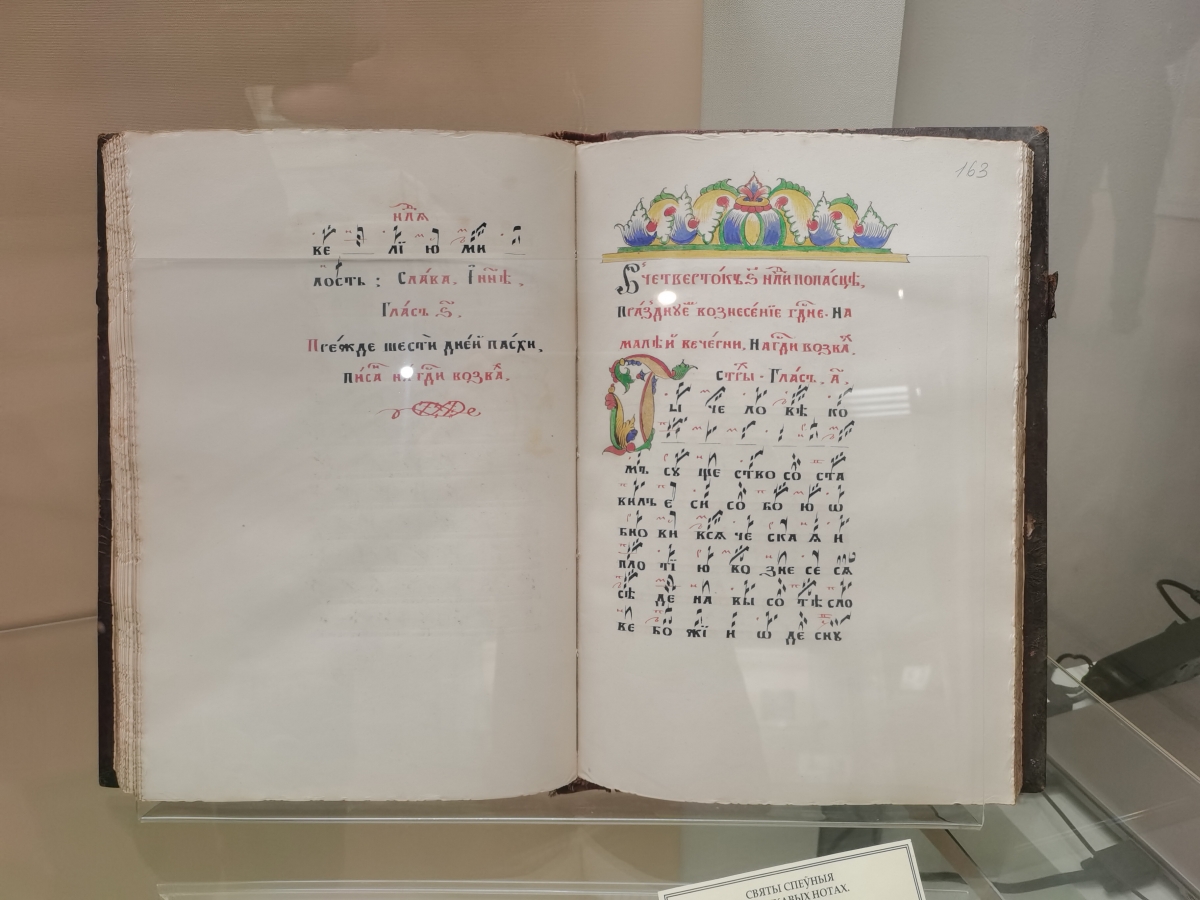 нл҃я
ке лї ю ми
лость : Сла́ва. І҆ ны́нѣ.
Гла́съ. ѕ҃.
Пре́жде шестѝ дне́й па́схи,
163
Въ четверто́къ ѕ҃ нл҃и по па́сцѣ,
Пра́зднуе вознесе́нїе гдн҃е. На
ма́лѣй вече́рни, На гд҃и возва́х.
стр҃ы. Гла́съ. а҃.
Ѿ че ло вѣ ко
мъ су ще ство со ста
вилъ е си со бо ю ѡ
бно ви вся че ска ѧ и
пло тї ю во зне се сѧ
сѣ де на вы со тѣ сло
ве бо жї и ѡ де сну
СВЯТЫ СПЕЎНЫЯ
НОТАХ.